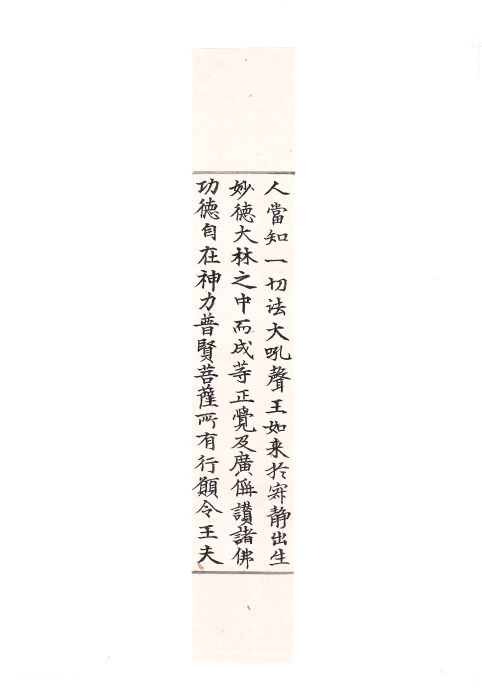 人當知一切法大吼聲王如来於寂静出生
妙徳大林之中而成等正覺及廣稱讃諸佛
功徳自在神力普賢菩薩所有行願令王夫